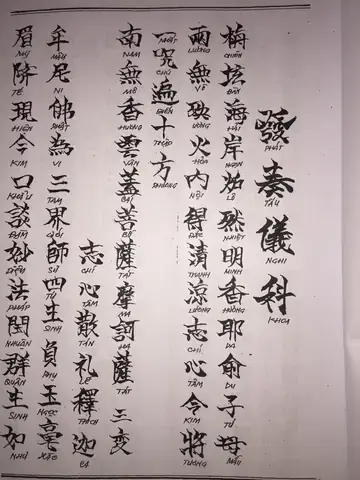 發奏儀科
PHÁT TẤU NGHI KHOA
栴坛海岸炉然明香耶俞子母
CHIÊN ĐÀN HẢI NGẠN LÔ NHIỆT MINH HƯƠNG DA DU TỬ MẪU
兩無殃火内得清涼志心今將
LƯỠNG VÔ ƯƠNG HỎA NỘI ĐẮC THANH LƯƠNG CHÍ TÂM KIM TƯƠNG
一咒遍十方
NHẤT CHÚ BIẾN THẬP PHƯƠNG
南無香雲蓋菩薩摩訶薩 三变
NAM MÔ HƯƠNG VÂN CÁI BỒ TÁT MA HA TÁT
志心散礼釋迦
CHÍ TÂM TÁN LỄ THÍCH CA
牟尼佛為三界師四生負玉毫
MÂU NI PHẬT VI TAM GIỚI SƯ TỨ SINH PHỤ NGỌC HÀO
眉際現今口談妙法閏群生如
MI TẾ HIỆN KIM KHẨU ĐÀM DIỆU PHÁP NHUẬN QUẦN SINH NHƯ